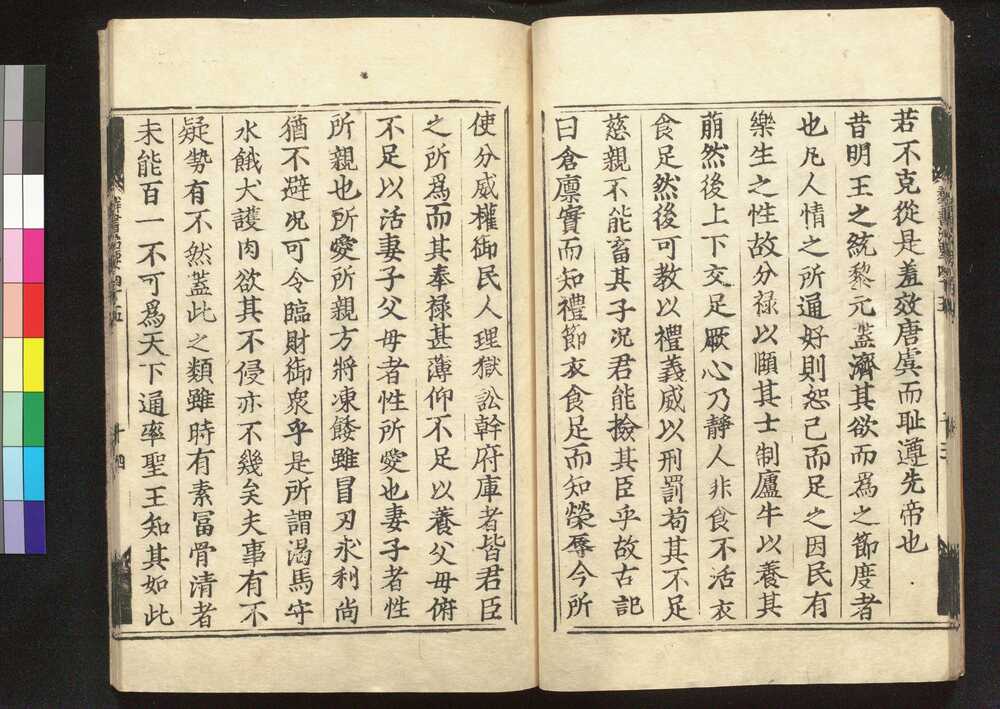 若不克從是羞效唐虞而耻遵先帝也
昔明王之統黎元盖濟其欲而爲之節度者
也凡人情之所通好則恕己而足之因民有
樂生之性故分禄以頤其士制廬牛以養其
萠然後上下交足厥心乃静人非食不活衣
食足然後可教以禮義威以刑罰苟其不足
慈親不能畜其子况君能撿其臣乎故古記
曰倉廪實而知禮節衣食足而知榮辱今所
使分威權御民人理獄訟幹府庫者皆君臣
之所爲而其奉禄甚薄仰不足以養父母俯
不足以活妻子父母者性所愛也妻子者性
所親也所愛所親方將凍餧雖冒刃求利尚
猶不避况可令臨財御衆乎是所謂渇馬守
水餓犬護肉欲其不侵亦不幾矣夫事有不
疑勢有不然盖此之類雖時有素冨骨清者
未能百一不可爲天下通率聖王知其如此
群書治要四十五
十四